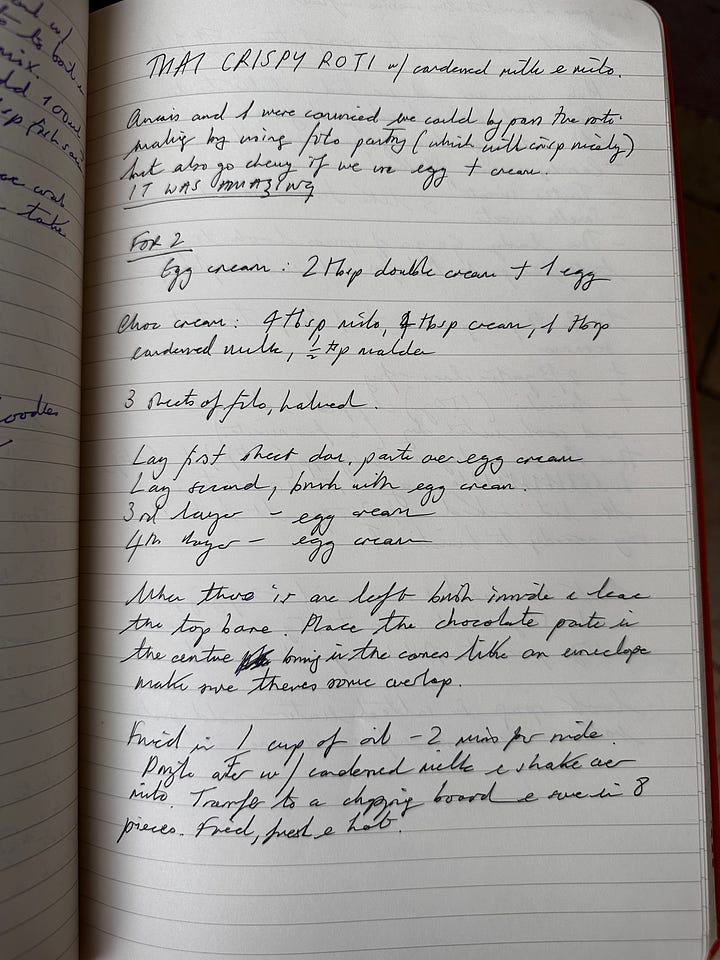 to boil
mix.
add 100ml
tsp fish sauce
take
noodles
THAI CRISPY ROTI w/ condensed milk e milo.
Anais and I were convinced we could by pass the roti
making by using filo pastry (which will crisp nicely)
but also go chewy if we use egg + cream.
IT WAS AMAZING
FOR 2
Egg cream: 2 tbsp double cream + 1 egg
Choc cream: 4 tbsp milo, 4 tbsp cream, 1 tbsp
condensed milk, ½ tsp maldon
3 sheets of filo, halved.
Lay first sheet down, paste over egg cream
Lay second, brush with egg cream.
3rd layer - egg cream
4th layer - egg cream
When there is one left brush inside e leave
the top bare. Place the chocolate paste in
the centre bring in the cones like an envelope
make sure theres some overlap.
Fried in 1 cup of oil - 2 mins per side.
Drizzle over w/ condensed milk e shake over
milo. Transfer to a chopping board e serve in 8
pieces. Fried, fresh e hot.